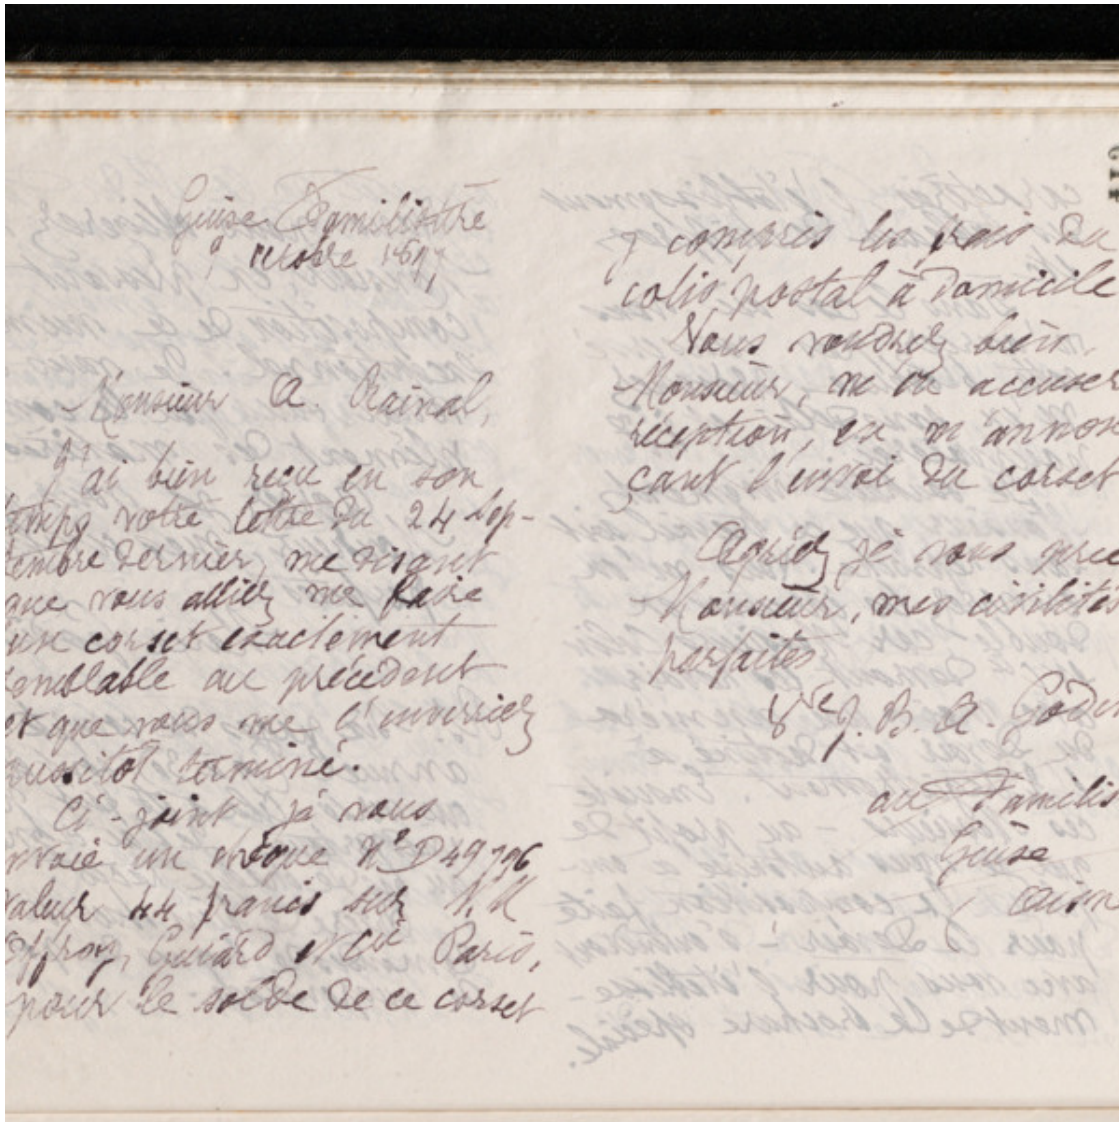 Guise Familistère
octobre 1897
Monsieur A. Rainal,
J'ai bien reçu en son
temps votre lettre du 24 Sep-
tembre dernier, me disant
que vous alliez me faire
un corset exactement
semblable au précédent
et que vous me l'enverriez
aussitôt terminé.
Ci-joint je vous
envoie un chèque No D49796
valeur 44 francs sur M.M
Guiard et Cie Paris,
pour le solde de ce corset
y compris les frais du
colis postal à domicile
Vous voudrez bien,
Monsieur, m'en accuser
réception, en m'annon
çant l'envoi du corset
Agréez je vous prie
Monsieur, mes civilités
parfaites
Vve J. B. A. Godin
au Familis
Guise
Aisne